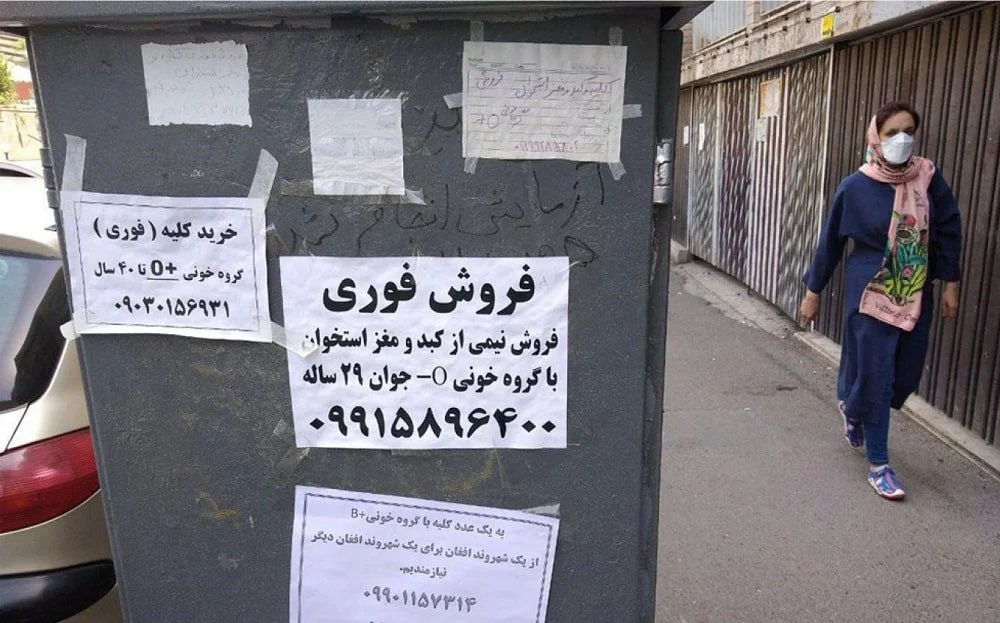 کلیه کبد و مغز استخوان فروشی
O+
آزمایش انجام شد
خرید کلیه ( فوری )
گروه خونی +O تا ۴۰ سال
۰۹۰۳۰۱۵۶۹۳۱
فروش فوری
فروش نیمی از کبد و مغز استخوان
با گروه خونی O– جوان ۲۹ ساله
۰۹۹۱۵۸۹۶۴۰۰
به یک عدد کلیه با گروه خونی+B
از یک شهروند افغان برای یک شهروند افغان دیگر
نیازمندیم.
۰۹۹۰۱۱۵۷۳۱۴
Vittorio